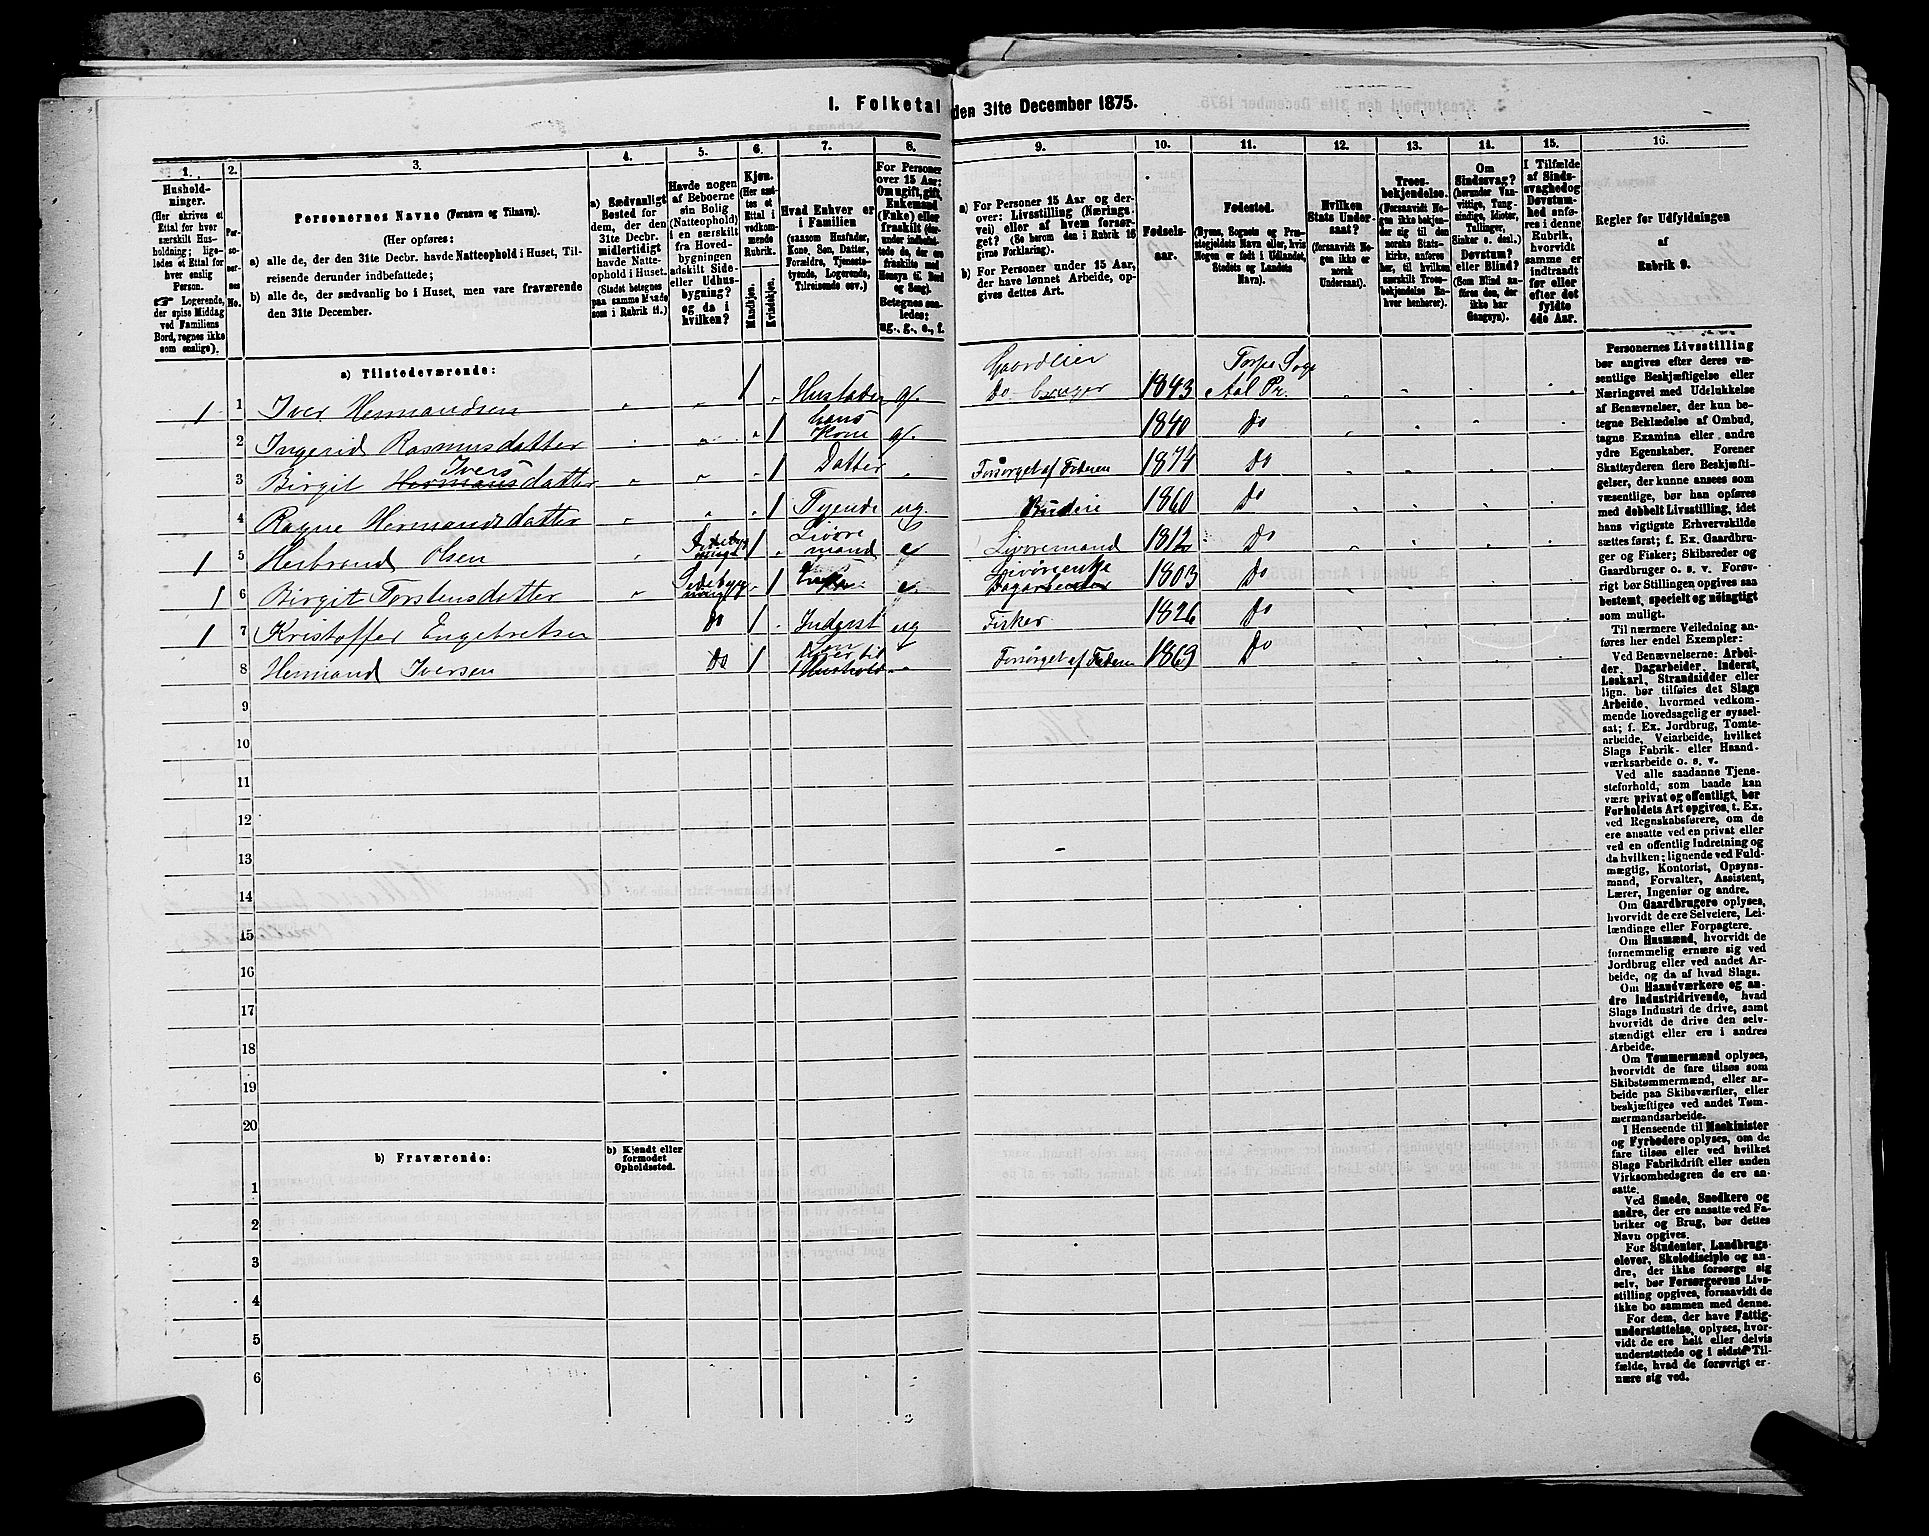 I. Folketal den 31te December 1875.
1. 2. 3. 4. 5. 6. 7. 8. 9. 10. 11. 12. 13. 14. 15. 16.
Hushold-
ninger.
(Her skrives et
Ettal for hver
særskilt Hus-
holdning; lige-
ledes et Ettal for
hver enslig
Person.
☞ Logerende,
der spise Middag
ved Familiens
Bord, regnes ikke
som enslige).
Per-
soner-
nes
No.
Personernes Navne (Fornavn og Tilnavn).
(Her opføres:
a) alle de, der den 31te Decbr. havde Natteophold i Huset, Til-
reisende derunder indbefattede;
b) alle de, der sædvanlig bo i Huset, men vare fraværende
den 31te December.
a) Sædvanligt
Bosted for
dem, der den
31te Decbr.
midlertidigt
havde Natte-
ophold i Huset.
(Stedet betegnes
paa samme Maade
som i Rubrik 11.)
Havde nogen
af Beboerne
sin Bolig
(Natteophold)
i en særskilt
fra Hoved-
bygningen
adskilt Side-
eller Udhus-
bygning?
og da i
hvilken?
Kjøn.
(Her sæt-
tes et
Ettal i
vedkom-
mende
Rubrik.
Mandkjøn.
Kvindekjøn.
Hvad Enhver er
i Familien
(saasom Husfader,
Kone, Søn, Datter,
Forældre, Tjeneste-
tyende, Logerende,
Tilreisende osv.)
For Personer
over 15 Aar:
Om ugift, gift,
Enkemand
(Enke) eller
fraskilt
Betegnes saa-
ledes:
ug., g., e., f.
a) For Personer over 15 Aar og der-
over: Livsstilling (Nærings-
vei) eller af hvem forsør-
get? (Se herom den i Rubrik 16
givne Forklaring).
b) For Personer under 15 Aar,
der have lønnet Arbeide, op-
gives dettes Art.
Fødsels-
aar.
Fødested.
(Byens, Sognets og Præ-
stegjeldets Navn eller, hvis
Nogen er født i Udlandet,
Stedets og Landets
Navn).
Hvilken
Stats Under-
saat?
(forsaavidt No-
gen ikke er
norsk
Undersaat).
Troes-
bekjendelse.
(Forsaavidt No-
gen ikke bekjen-
der sig til den
norske Stats-
kirke, anføres
her, til hvilken
særskilt Troes-
bekjendelse En-
hver henhører).
Om
Sindssvag?
(herunder Van-
vittige, Tung-
sindige, Idioter,
Tullinger,
Sinker o. desl.)
Døvstum?
eller Blind?
(Som Blind an-
føres den, der
ikke har
Gangsyn).
I Tilfælde
af Sinds-
svaghed og
Døvstum-
hed anfø-
res i denne
Rubrik,
hvorvidt
samme er
indtraadt
før eller
efter det
fyldte
4de Aar.
Regler for Udfyldningen
af
Rubrik 9.
a) Tilstedeværende:
1 1 Iver Hermandsen 1 Husfader g. Gaardeier Do bruger 1843 Torpe Sogn Aal Pr.
2 Ingerid Rasmusdatter 1 hans Kone g. 1840 Do
3 Birgit Ivers datter 1 Datter Forsørget af Faderen 1874 Do
4 Ragne Hermandsdatter 1 Tyende ug. Budeie 1860 Do
1 5 Herbrand Olsen Sidebygning 1 Livøremand e Livøremand 1812 Do
1 6 Birgit Torstensdatter Sidebygning 1 e. Livørenke 1803 Do
1 7 Kristoffer Engebretsen Do 1 Inderst ug Fisker 1826 Do
8 Hermand Iversen Do 1 Søn hører til 1 Hushold Forsørget af Faderen 1869 Do
9
10
11
12
13
14
15
16
17
18
19
20
b) Fraværende:
b) Kjendt eller
formodet
Opholdssted.
1
2
3
4
5
6
Personernes Livsstilling
bør angives efter deres væ-
sentlige Beskjæftigelse eller
Næringsvei med Udelukkelse
af Benævnelser, der kun be-
tegne Beklædelse af Ombud,
tagne Examina eller andre
ydre Egenskaber. Forener
Skatteyderen flere Beskjæfti-
gelser, der kunne ansees som
væsentlige, bør han opføres
med dobbelt Livsstilling, idet
hans vigtigste Erhvervskilde
sættes først; f. Ex. Gaardbru-
ger og Fisker; Skibsreder og
Gaardbruger o. s. v. Forøv-
rigt bør Stillingen opgives saa
bestemt, specielt og nøiagtigt
som muligt.
Til nærmere Veiledning an-
føres her endel Exempler:
Ved Benævnelserne: Arbei-
der, Dagarbeider, Inderst,
Løskarl, Strandsidder eller
lign. bør tilføies det Slags
Arbeide, hvormed vedkom-
mende hovedsagelig er syssel-
sat; f. Ex. Jordbrug, Tomte-
arbeide, Veiarbeide, hvilket
Slags Fabrik- eller Haand-
værksarbeide o. s. v.
Ved alle saadanne Tjene-
steforhold, som baade kan
være privat og offentligt, bør
Forholdets Art opgives, t. Ex.
ved Regnskabsførere, om de
ere ansatte ved en privat eller
ved en offentlig Indretning og
da hvilken; lignende ved Fuld-
mægtig, Kontorist, Opsyns-
mand, Forvalter, Assistent,
Lærer, Ingeniør og andre.
Om Gaardbrugere oplyses,
hvorvidt de ere Selveiere, Lei-
lændinge eller Forpagtere.
Om Husmænd, hvorvidt de
fornemmelig ernære sig ved
Jordbrug eller ved andet Ar-
beide, og da af hvad Slags.
Om Haandværkere og an-
dre Industridrivende, hvad
Slags Industri de drive, samt
hvorvidt de drive den selv-
stændigt eller ere i andres
Arbeide.
Om Tømmermænd oplyses,
hvorvidt de fare tilsøs som
Skibstømmermænd, eller ar-
beide paa Skibsværfter, eller
beskjæftiges ved andet Tøm-
mermandsarbeide.
I Henseende til Maskinister
og Fyrbødere oplyses, om de
fare tilsøs eller ved hvilket
Slags Fabrikdrift eller anden
Virksomhedsgren de ere an-
satte.
Ved Smede, Snedkere og
andre, der ere ansatte ved Fa-
briker og Brug, bør dettes
Navn opgives.
For Studenter, Landbrugs-
elever, Skoledisciple og an-
dre, der ikke forsørge sig
selv, bør Forsørgerens Livs-
stilling opgives, forsaavidt de
ikke bo sammen med denne.
For dem, der have Fattig-
understøttelse, oplyses, hvor-
vidt de ere helt eller delvis
understøttede og i sidste Til-
fælde, hvad de forøvrigt er-
nære sig ved.